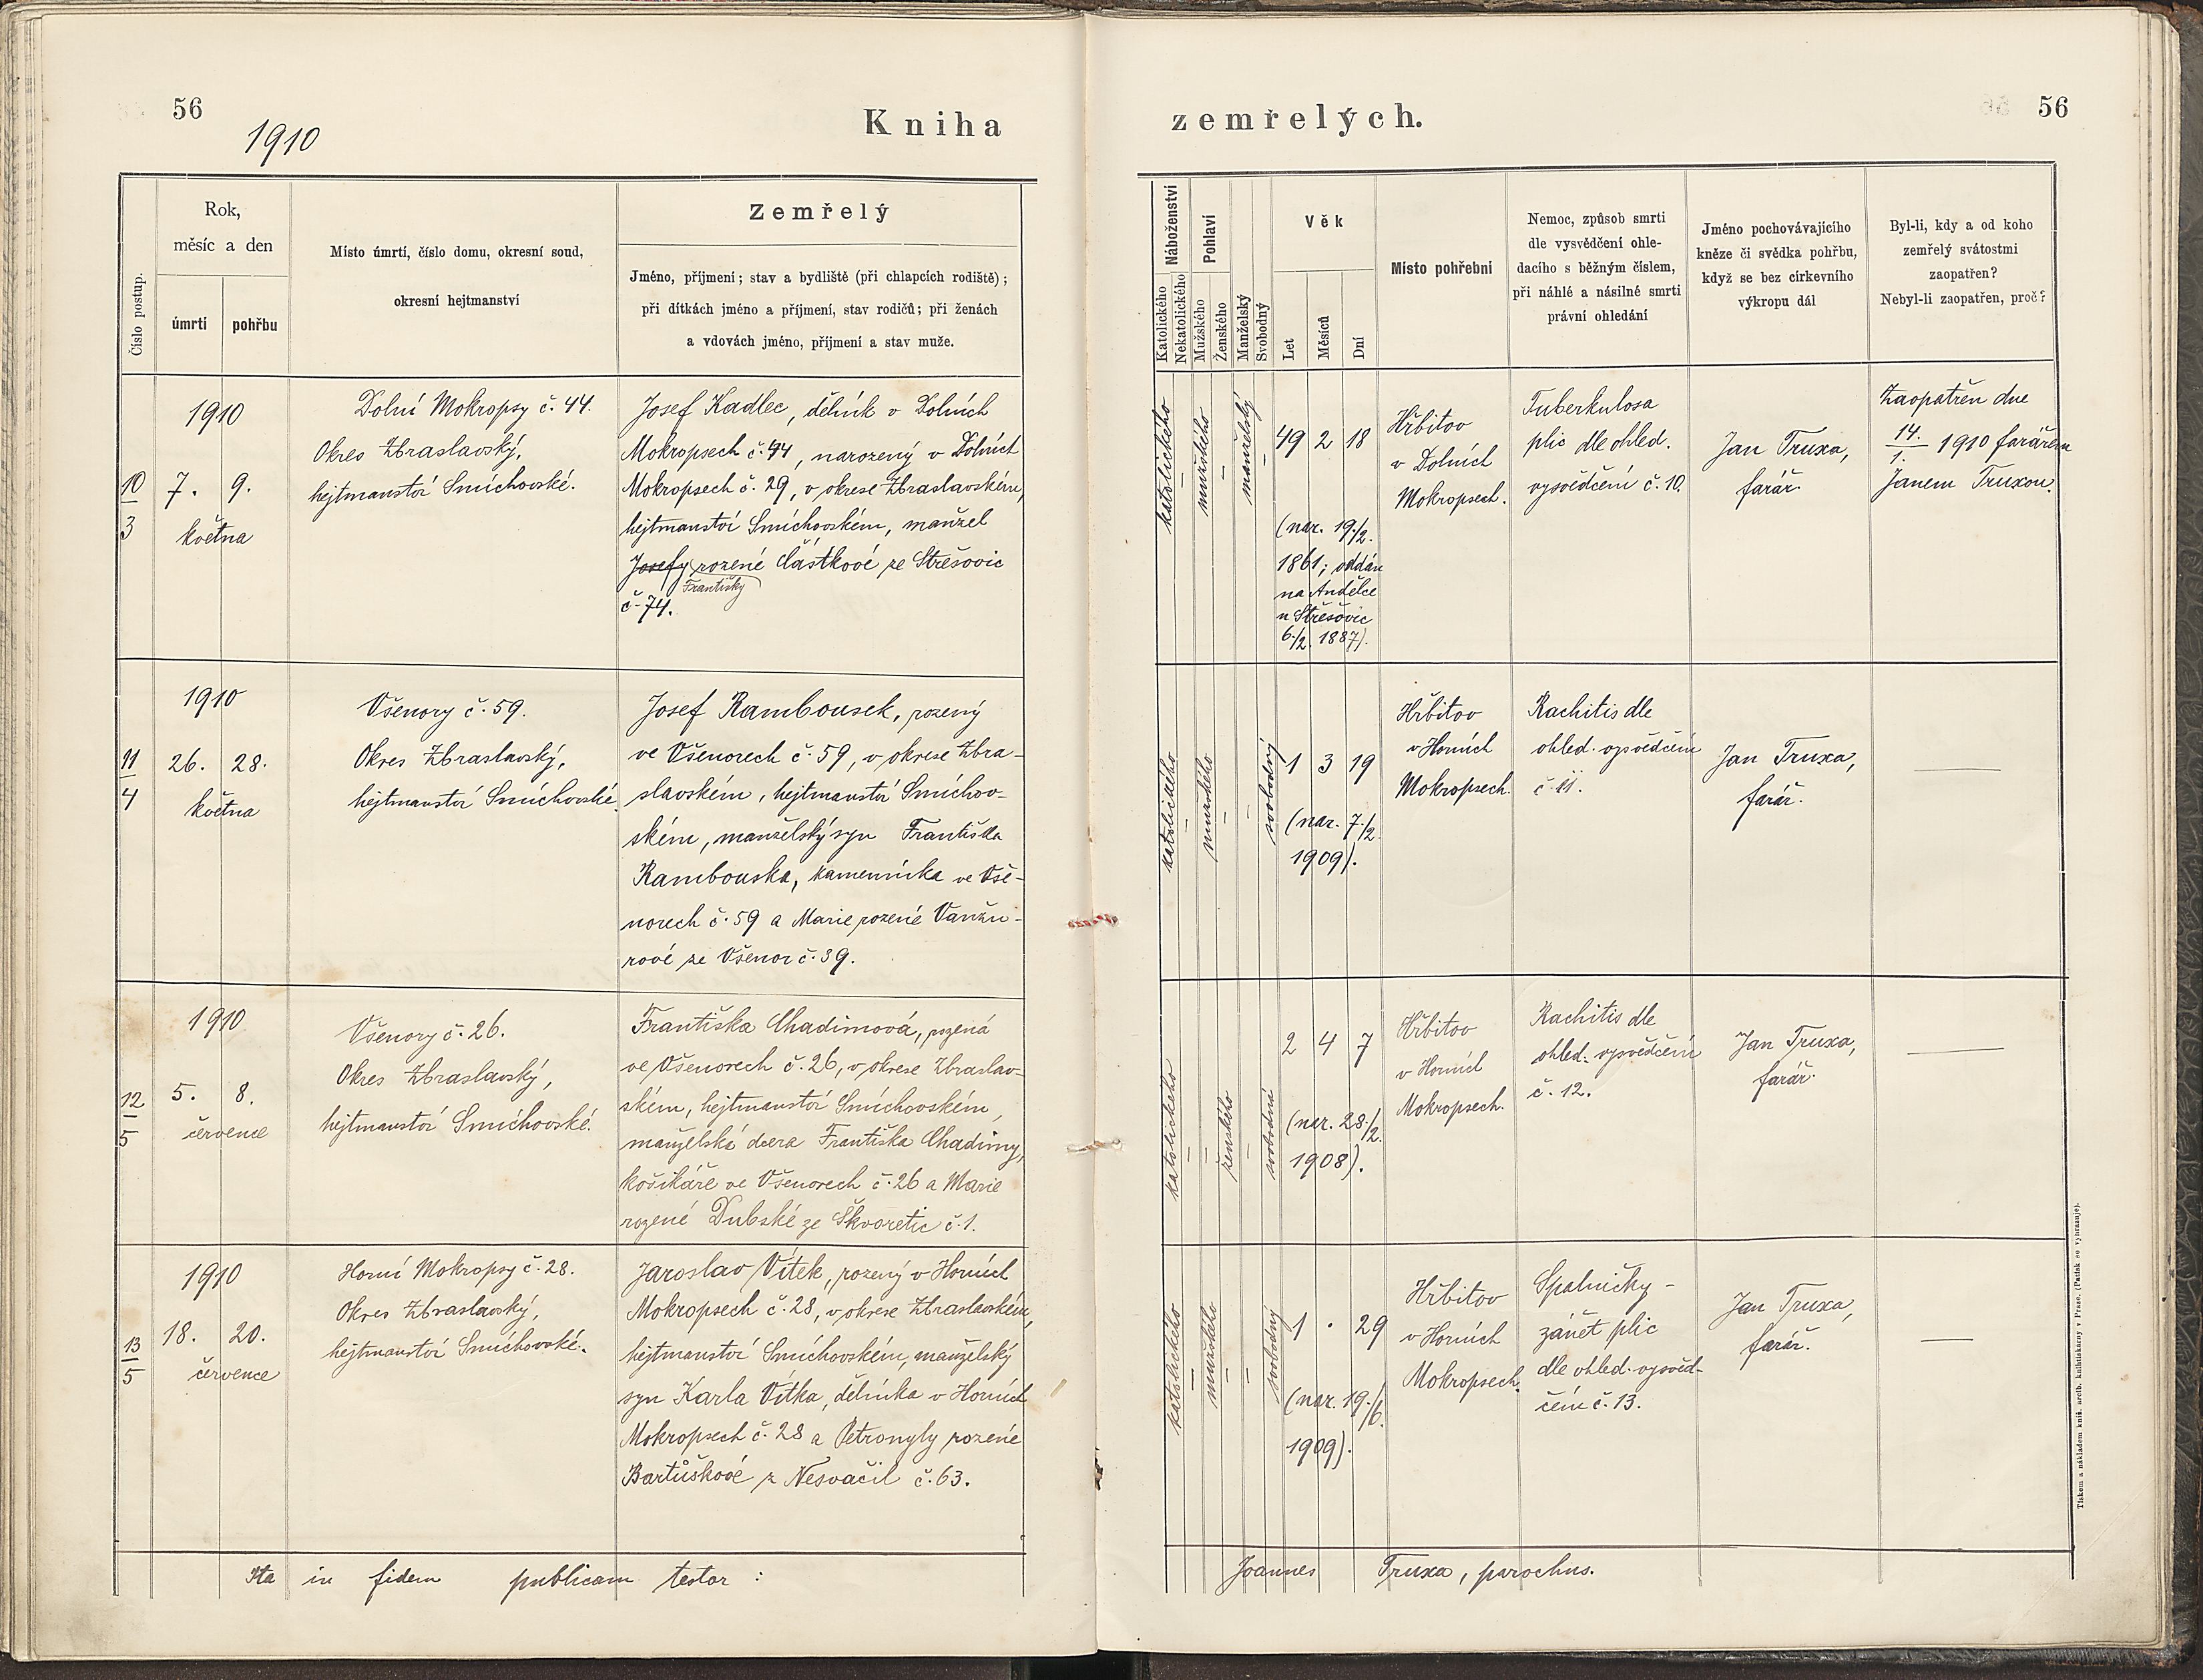 56
1910
Kniha
Číslo postup.
Rok,
měsíc a den
úmrtí
pohřbu
Místo úmrtí, číslo domu, okresní soud,
okresní hejtmanství
Zemřelý
Jméno, příjmení; stav a bydliště (při chlapcích rodiště);
při dítkách jméno a příjmení, stav rodičů; při ženách
a vdovách jméno, příjmení a stav muže.
10
3
1910
7. 9.
května
Dolní Mokropsy č. 44.
Okres Zbraslavský,
hejtmanství Smíchovské.
Josef Kadlec, dělník v Dolních
Mokropsech č. 44, narozený v Dolních
Mokropsech č. 29, v okrese Zbraslavském,
hejtmanství Smíchovském, manžel
Josefy rozené Částkové ze Střešovic
Františky
č. 74.
11
4
1910
26. 28.
května
Všenory č. 59.
Okres Zbraslavský,
hejtmanství Smíchovské.
Josef Rambousek, rozený
ve Všenorech č. 59, v okrese Zbra-
slavském, hejtmanství Smíchov-
ském, manželský syn Františka
Rambouska, kamenníka ve Vše-
norech č. 59 a Marie rozené Vanžu-
rové ze Všenor č. 39.
12
5
1910
5. 8.
července
Všenory č. 26.
Okres Zbraslavský,
hejtmanství Smíchovské.
Františka Chadimová, rozená
ve Všenorech č. 26, v okrese Zbraslav-
ském, hejtmanství Smíchovském,
manželská dcera Františka Chadimy,
košikáře ve Všenorech č. 26 a Marie
rozené Dubské ze Škvoretic č. 1.
13
5
1910
18. 20.
července
Horní Mokropsy č. 28.
Okres Zbraslavský,
hejtmanství Smíchovské.
Jaroslav Vítek, rozený v Horních
Mokropsech č. 28, v okrese Zbraslavském,
hejtmanství Smíchovském, manželský
syn Karla Vítka, dělníka v Horních
Mokropsech č. 28 a Petronyly rozené
Bartůškové z Nesvačil č. 63.
Ita in fidem publicam testor :
zemřelých.
56
Náboženství
Katolického
Nekatolického
Pohlaví
Mužského
Ženského
Manželský
Svobodný
Věk
Let
Měsíců
Dní
Místo pohřební
Nemoc, způsob smrti
dle vysvědčení ohle-
dacího s běžným číslem,
při náhlé a násilné smrti
právní ohledání
Jméno pochovávajícího
kněze či svědka pohřbu,
když se bez církevního
výkropu dál
Byl-li, kdy a od koho
zemřelý svátostmi
zaopatřen?
Nebyl-li zaopatřen, proč?
katolického
–
mužského
–
manželský
–
49 2 18
(nar. 19./2.
1861; oddán
na Andělce
u Střešovic
6./2. 1887).
Hřbitov
v Dolních
Mokropsech.
Tuberkulosa
plic dle ohled.
vysvědčení č. 10.
Jan Truxa,
farář.
Zaopatřen dne
14.
1. 1910 farářem
Janem Truxou.
katolického
–
mužského
–
–
svobodný
1 3 19
(nar. 7./2.
1909).
Hřbitov
v Horních
Mokropsech.
Rachitis dle
ohled. vysvědčení
č. 11.
Jan Truxa,
farář.
—
katolického
–
–
ženského
–
svobodná
2 4 7
(nar. 28./2.
1908).
Hřbitov
v Horních
Mokropsech.
Rachitis dle
ohled. vysvědčení
č. 12.
Jan Truxa,
farář.
—
katolického
–
mužského
–
–
svobodný
1 . 29
(nar. 19./6.
1909).
Hřbitov
v Horních
Mokropsech.
Spalničky –
zánět plic
dle ohled. vysvěd-
čení č. 13.
Jan Truxa,
farář.
—
Joannes Truxa, parochus.
Tiskem a nákladem kníž. arcib. knihtiskárny v Praze. (Patisk se vyhrazuje).